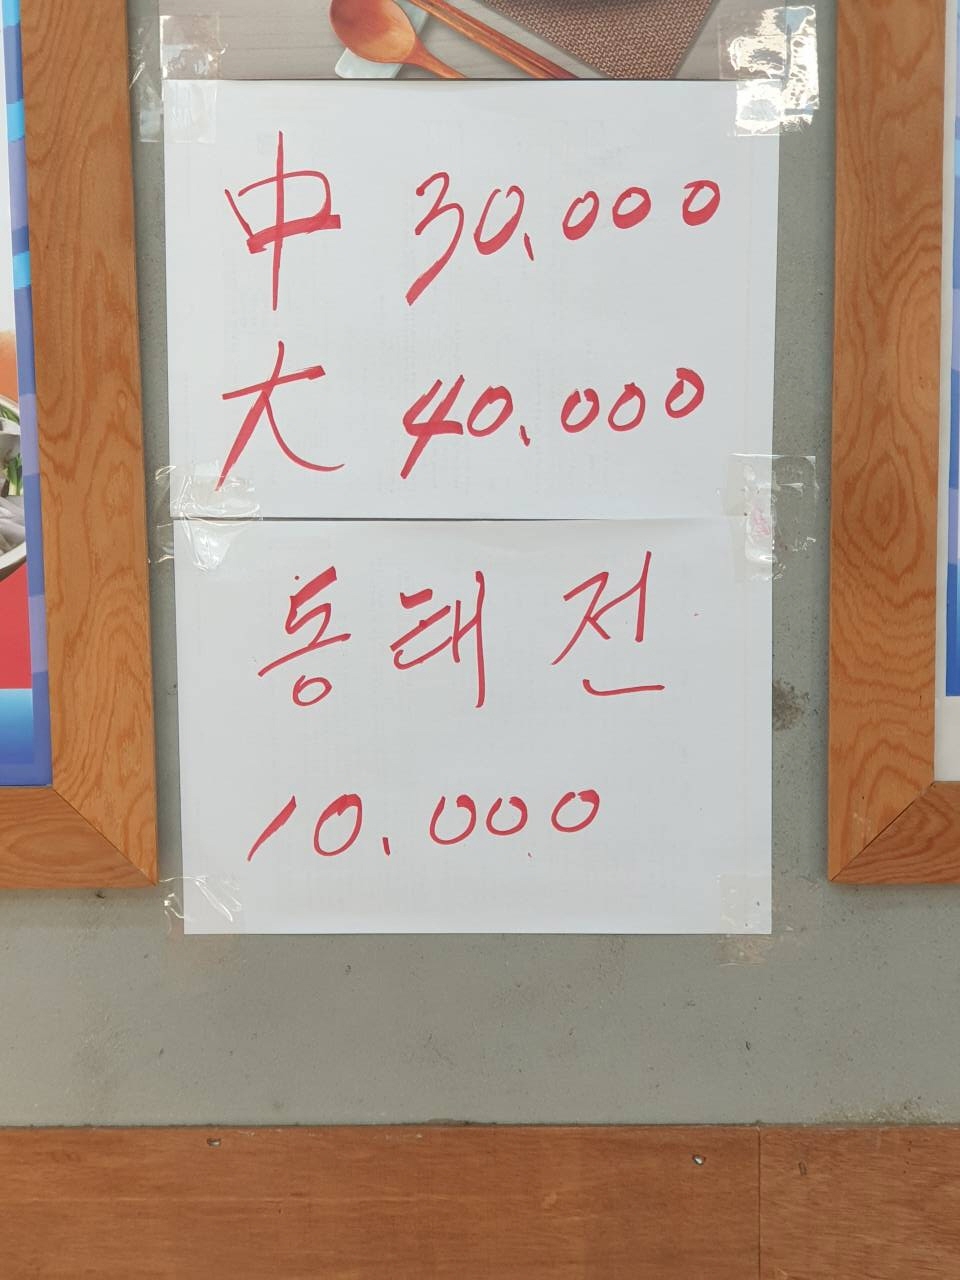 中 30,000
大 40,000
동태전
10,000